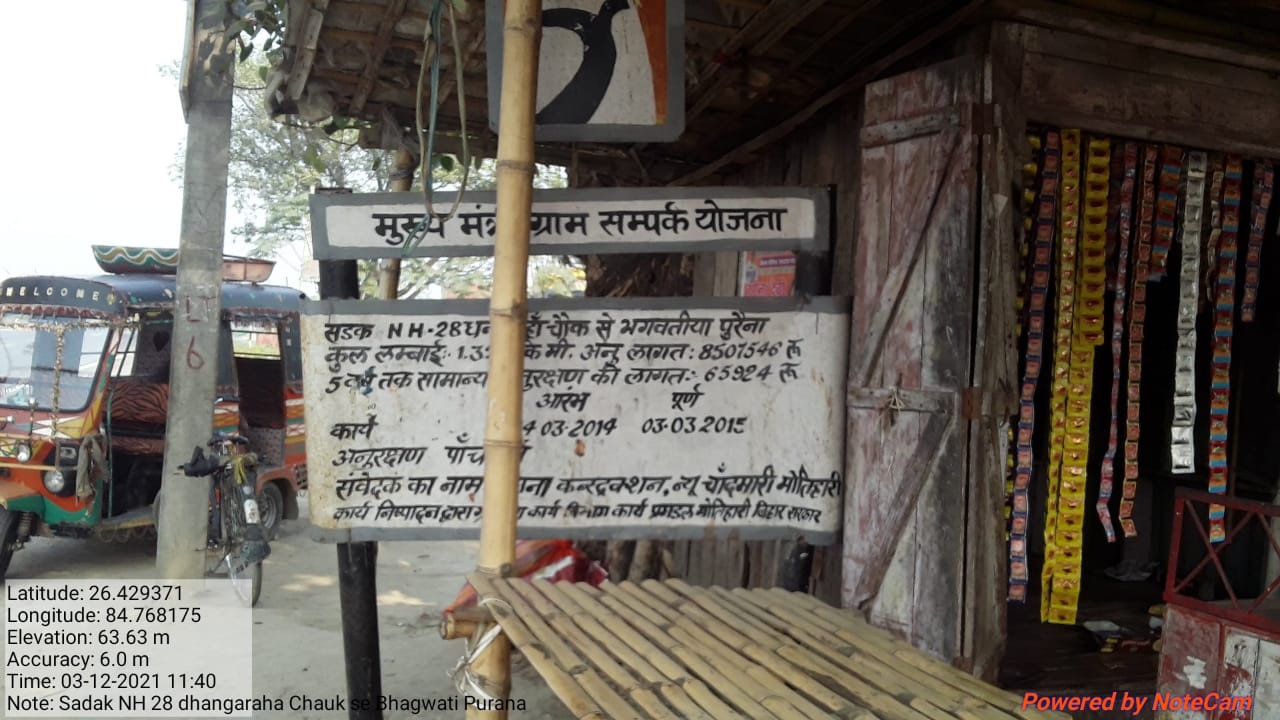 WELCOME
मुख्य ग्राम सम्पर्क योजना
सडक NH-28 चौक से भगवतीया पुरैना
कुल लम्बाई:- कि मी. अनु लागत: 8507546 रू
5 वर्ष तक सामान्य की लागत:- 65924 रू
आरंभ पूर्ण
कार्य 03.2014 03.03.2015
अनुरक्षण
संवेदक का नाम कन्स्ट्रक्शन, न्यू चाँदमारी मोतिहारी
कार्य निष्पादन द्वारा कार्य विभाग कार्य प्रमंडल मोतिहारी बिहार सरकार
6
Latitude: 26.429371
Longitude: 84.768175
Elevation: 63.63 m
Accuracy: 6.0 m
Time: 03-12-2021 11:40
Note: Sadak NH 28 dhangaraha Chauk se Bhagwati Purana
Powered by NoteCam